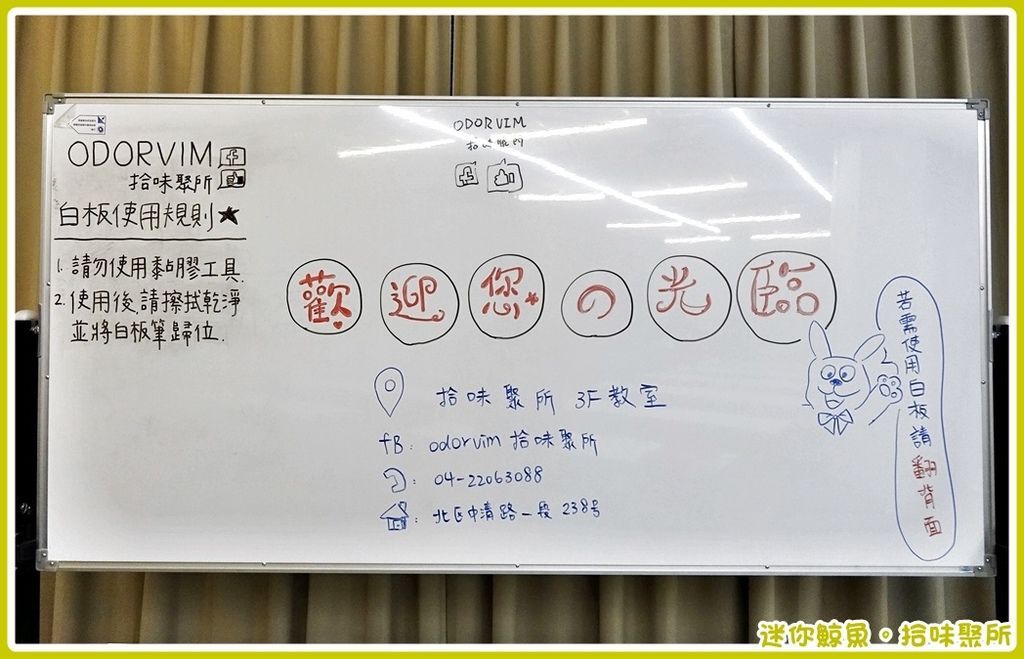 ODORVIM
拾味聚所
白板使用規則★
1. 請勿使用黏膠工具.
2. 使用後,請擦拭乾淨
並將白板筆歸位.
ODORVIM
拾味聚所
歡迎您の光臨
拾味聚所 3F教室
fB: odorvim 拾味聚所
: 04-22063088
: 北區中清路一段 238号
若需使用白板請翻背面
迷你鯨魚。拾味聚所